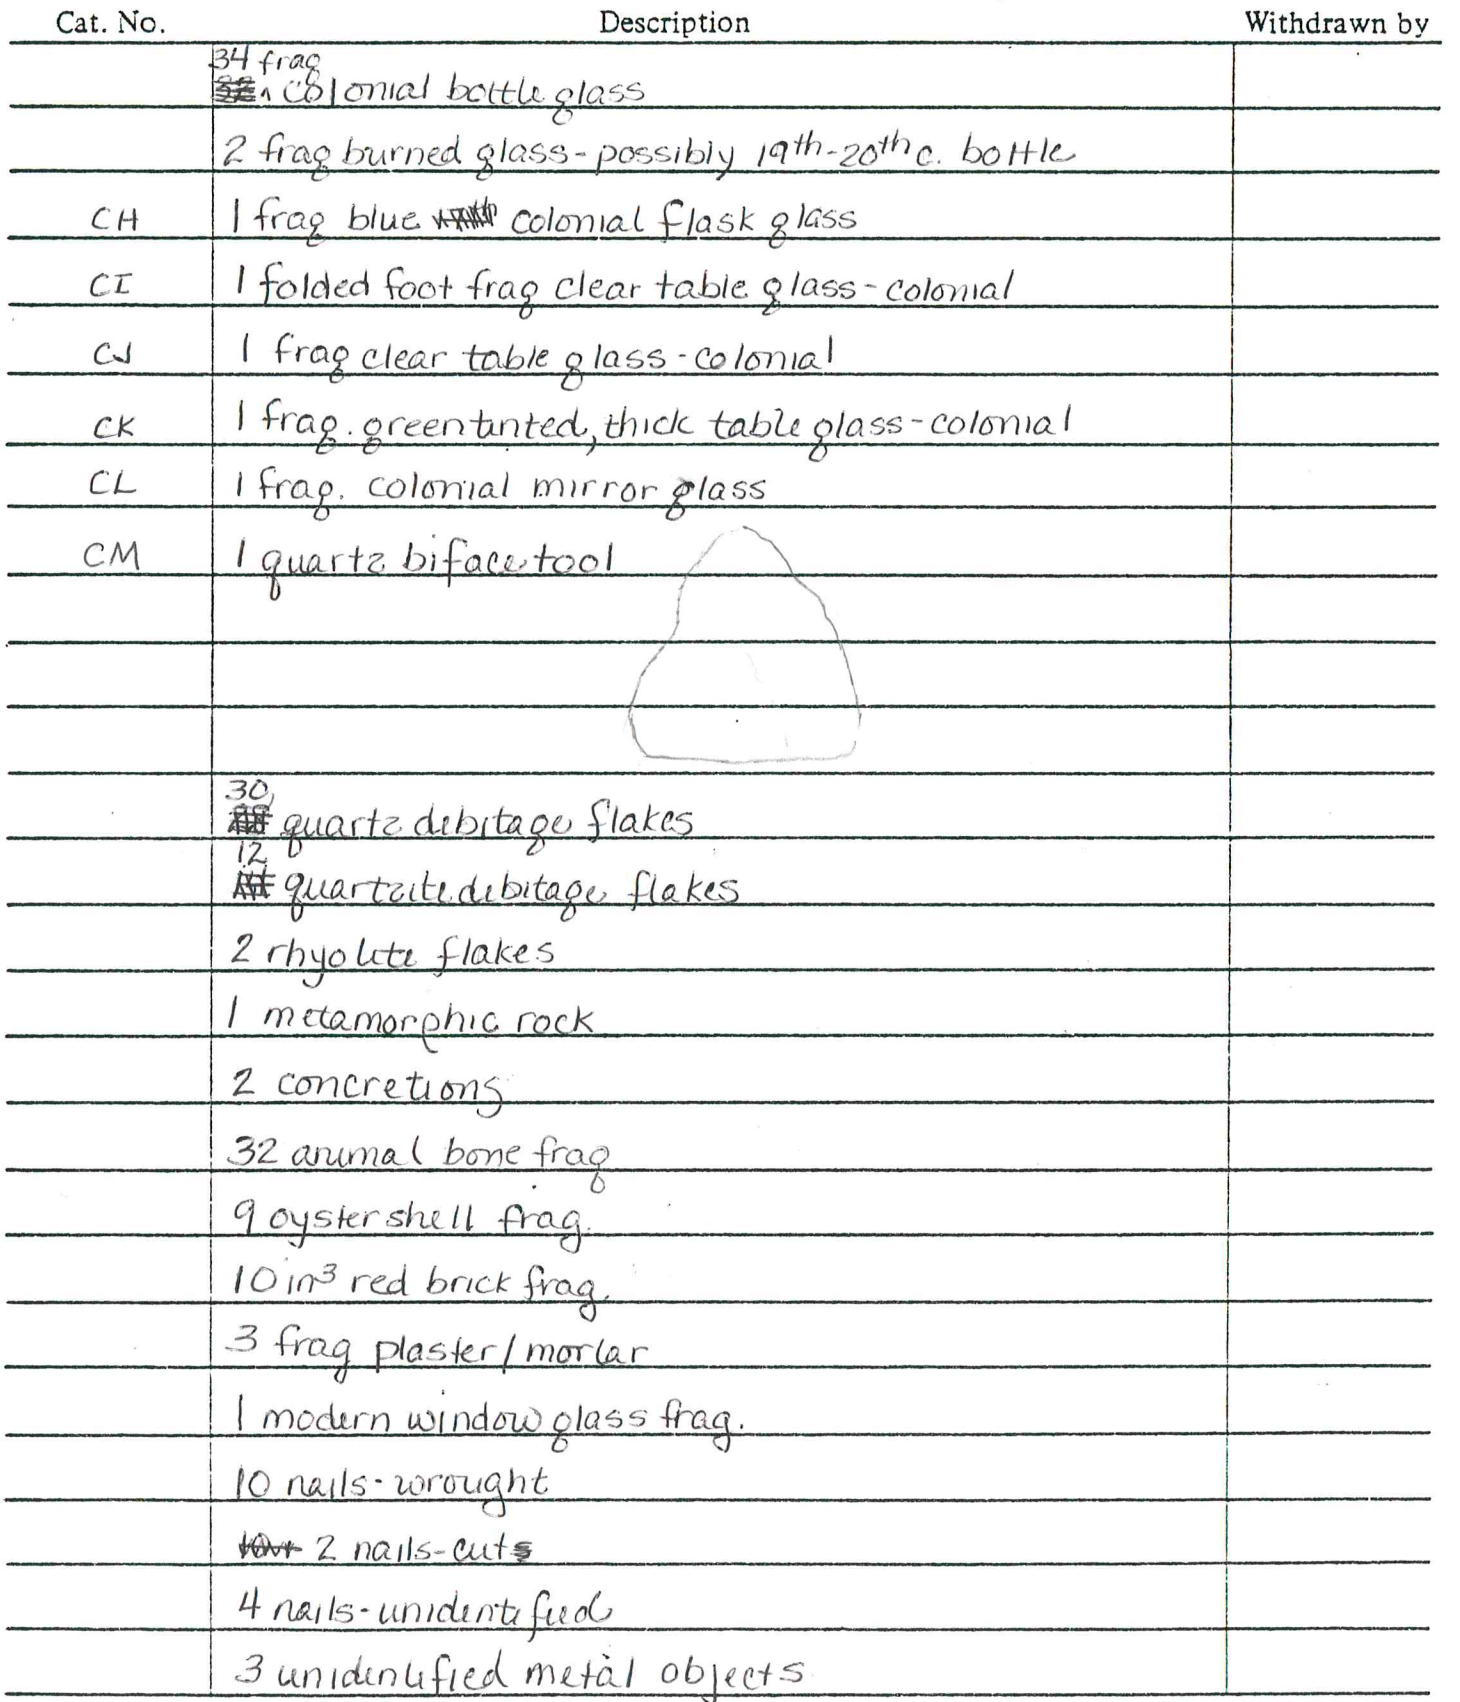 Cat. No. Description Withdrawn by
34 frag
colonial bottle glass
2 frag burned glass - possibly 19th-20th c. bottle
CH 1 frag blue colonial flask glass
CI 1 folded foot frag clear table glass - colonial
CJ 1 frag clear table glass - colonial
CK 1 frag. green tinted, thick table glass - colonial
CL 1 frag. colonial mirror glass
CM 1 quartz biface tool
30
quartz debitage flakes
12
quartzite debitage flakes
2 rhyolite flakes
1 metamorphic rock
2 concretions
32 animal bone frag
9 oyster shell frag.
10 in³ red brick frag.
3 frag plaster/mortar
1 modern window glass frag.
10 nails - wrought
2 nails - cut
4 nails - unidentified
3 unidentified metal objects